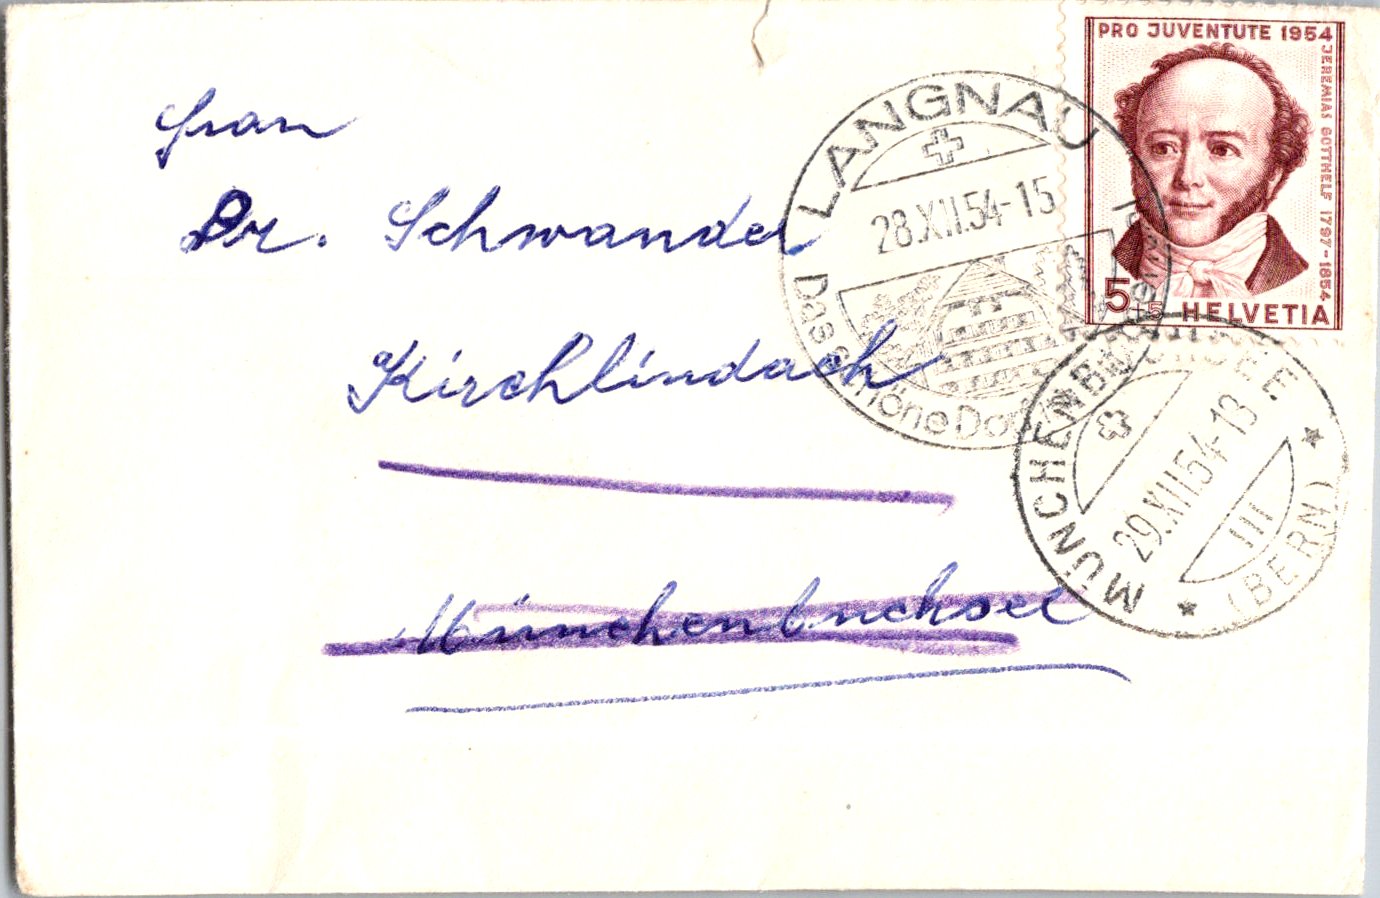 Frau
Dr. Schwander
Kirchlindach
Münchenbuchsee
LANGNAU
28.XII.54-15
Das schöne Dorf im
PRO JUVENTUTE 1954
JEREMIAS GOTTHELF 1797-1854
5+5 HELVETIA
MÜNCHENBUCHSEE
29.XII.54-13
III
(BERN)